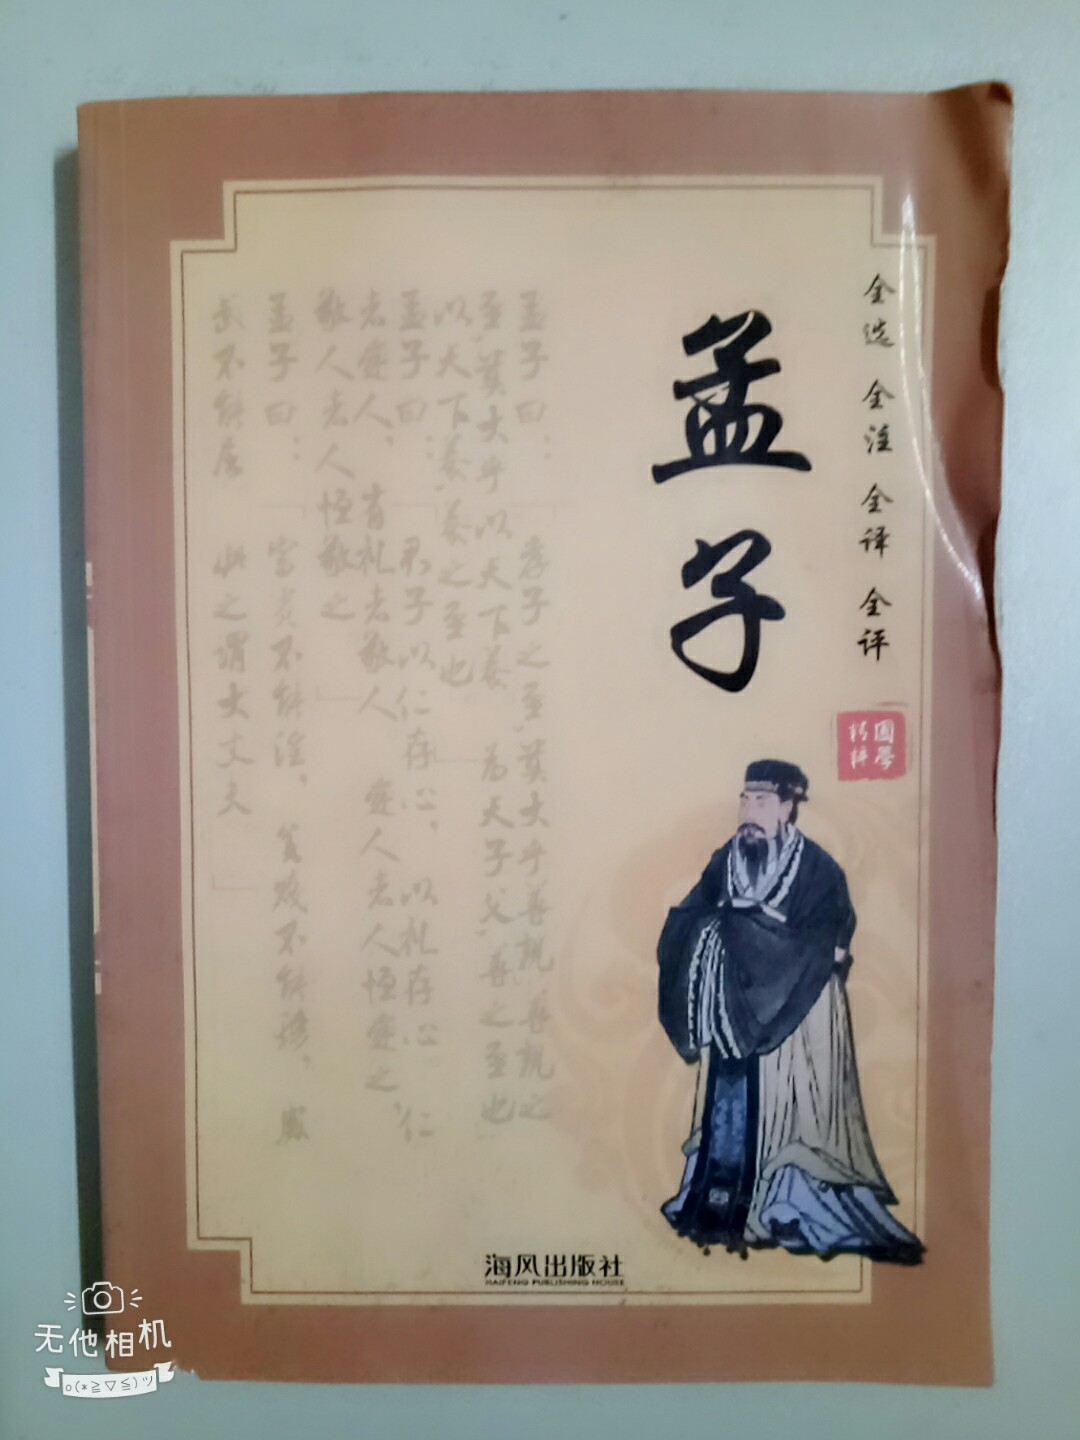 孟子
全选 全注 全译 全评
國學
精粹
孟子曰：孝子之至，莫大乎尊親，尊親之
至，莫大乎以天下養 为天子父，尊之至也
以天下養，養之至也
孟子曰：君子以仁存心，以礼存心，仁
者愛人，有礼者敬人 愛人者人恒愛之，
敬人者人恒敬之
孟子曰：富贵不能淫，贫贱不能移，威
武不能屈 此之谓大丈夫
海风出版社
HAIFENG PUBLISHING HOUSE
无他相机
o(*≧▽≦)ツ